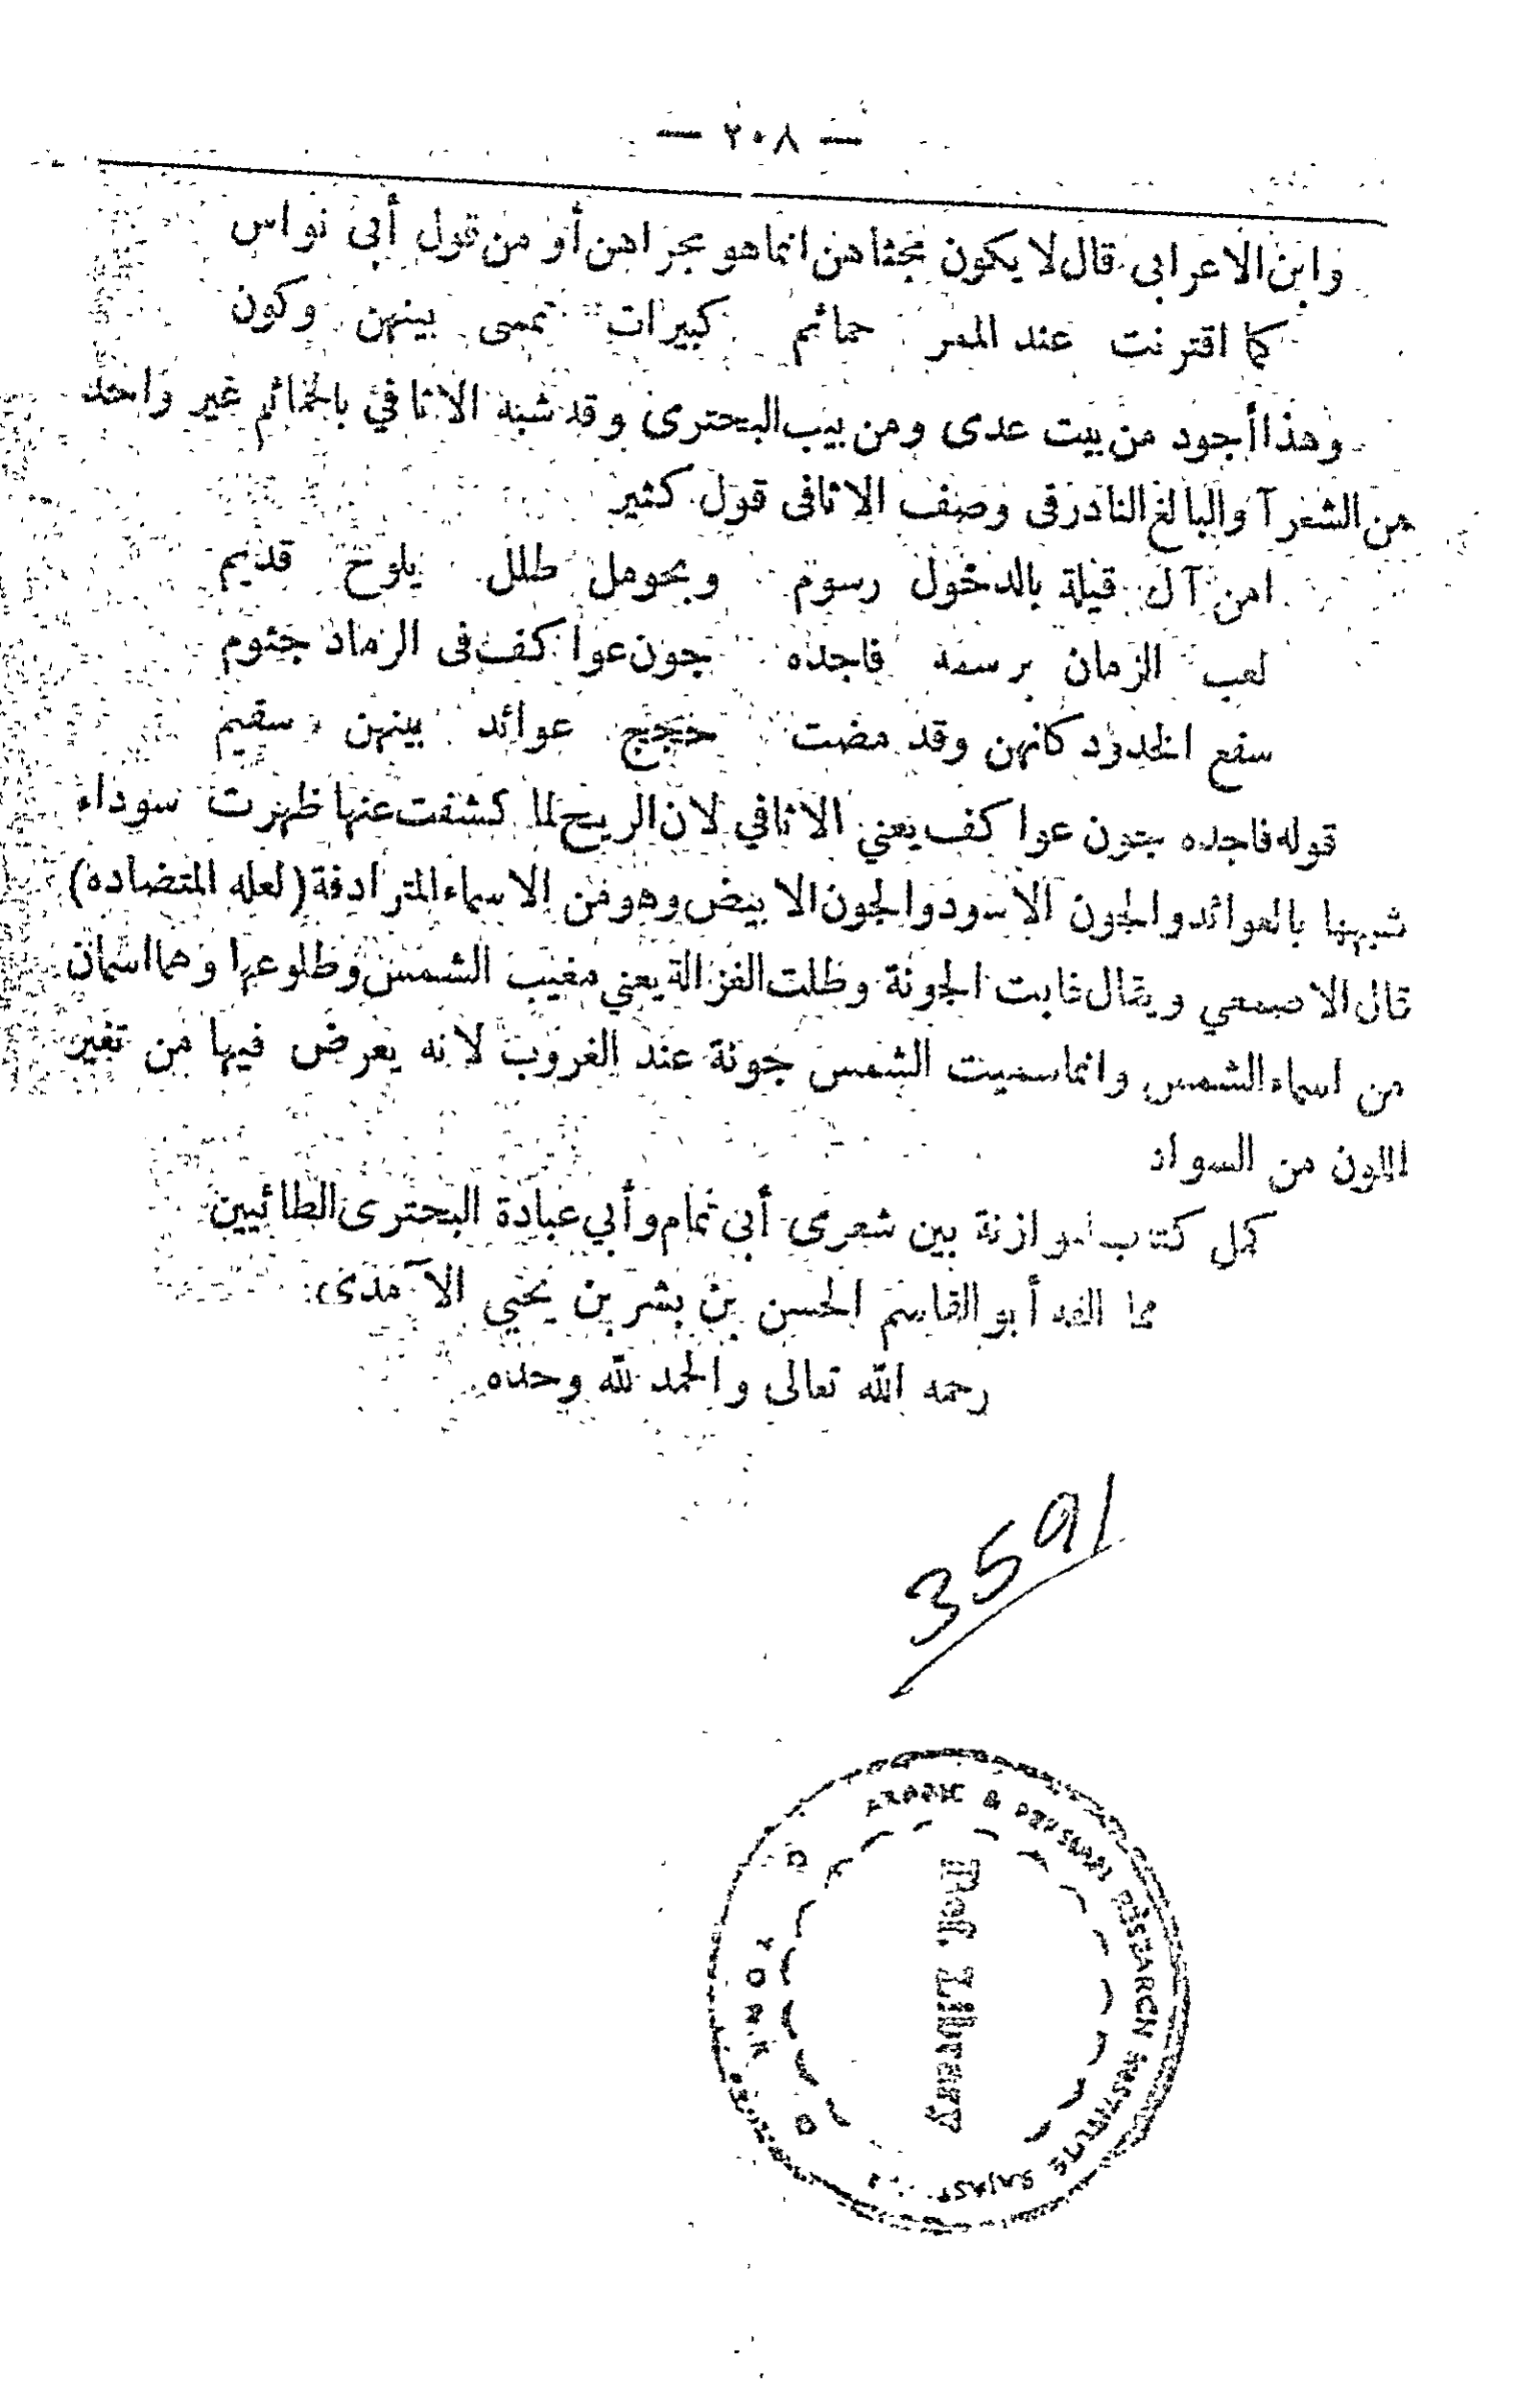 — ٢٠٨ —
وابن الاعرابى قال لا يكون مجثاهن انما هو مجراهن أو من قول أبى نواس
كما اقترنت عند الممر حمائم كبيرات تمسى بينهن وكون
وهذا أجود من بيت عدى ومن بيب البحترى وقد شبه الاثافي بالحمائم غير واحد
من الشعرآ والبالغ النادر فى وصف الاثافى قول كثير
امن آل قيلة بالدخول رسوم وبحومل طلل يلوح قديم
لعب الزمان برسمه فاجده جون عواكف فى الرماد جثوم
سفع الخدود كانهن وقد مضت حجج عوائد بينهن سقيم
قوله فاجده جون عواكف يعني الاثافي لان الريح لما كشفت عنها ظهرت سوداء
شبهها بالعوائد والجون الاسود والجون الابيض وهو من الاسماء المترادفة (لعله المتضاده)
قال الاصمعي ويقال غابت الجونة وطلت الغزالة يعني مغيب الشمس وطلوعها وهما اسمان
من اسماء الشمس وانما سميت الشمس جونة عند الغروب لانه يعرض فيها من تغير
اللون من السواد
كمل كتاب لموازنة بين شعرى أبى تمام وأبي عبادة البحترى الطائيين
مما الفه أبو القاسم الحسن بن بشر بن يحيي الآمدى
رحمه الله تعالى والحمد لله وحده
3591
ARABIC & PERSIAN RESEARCH INSTITUTE RAJAST
Ref. Library
TONK